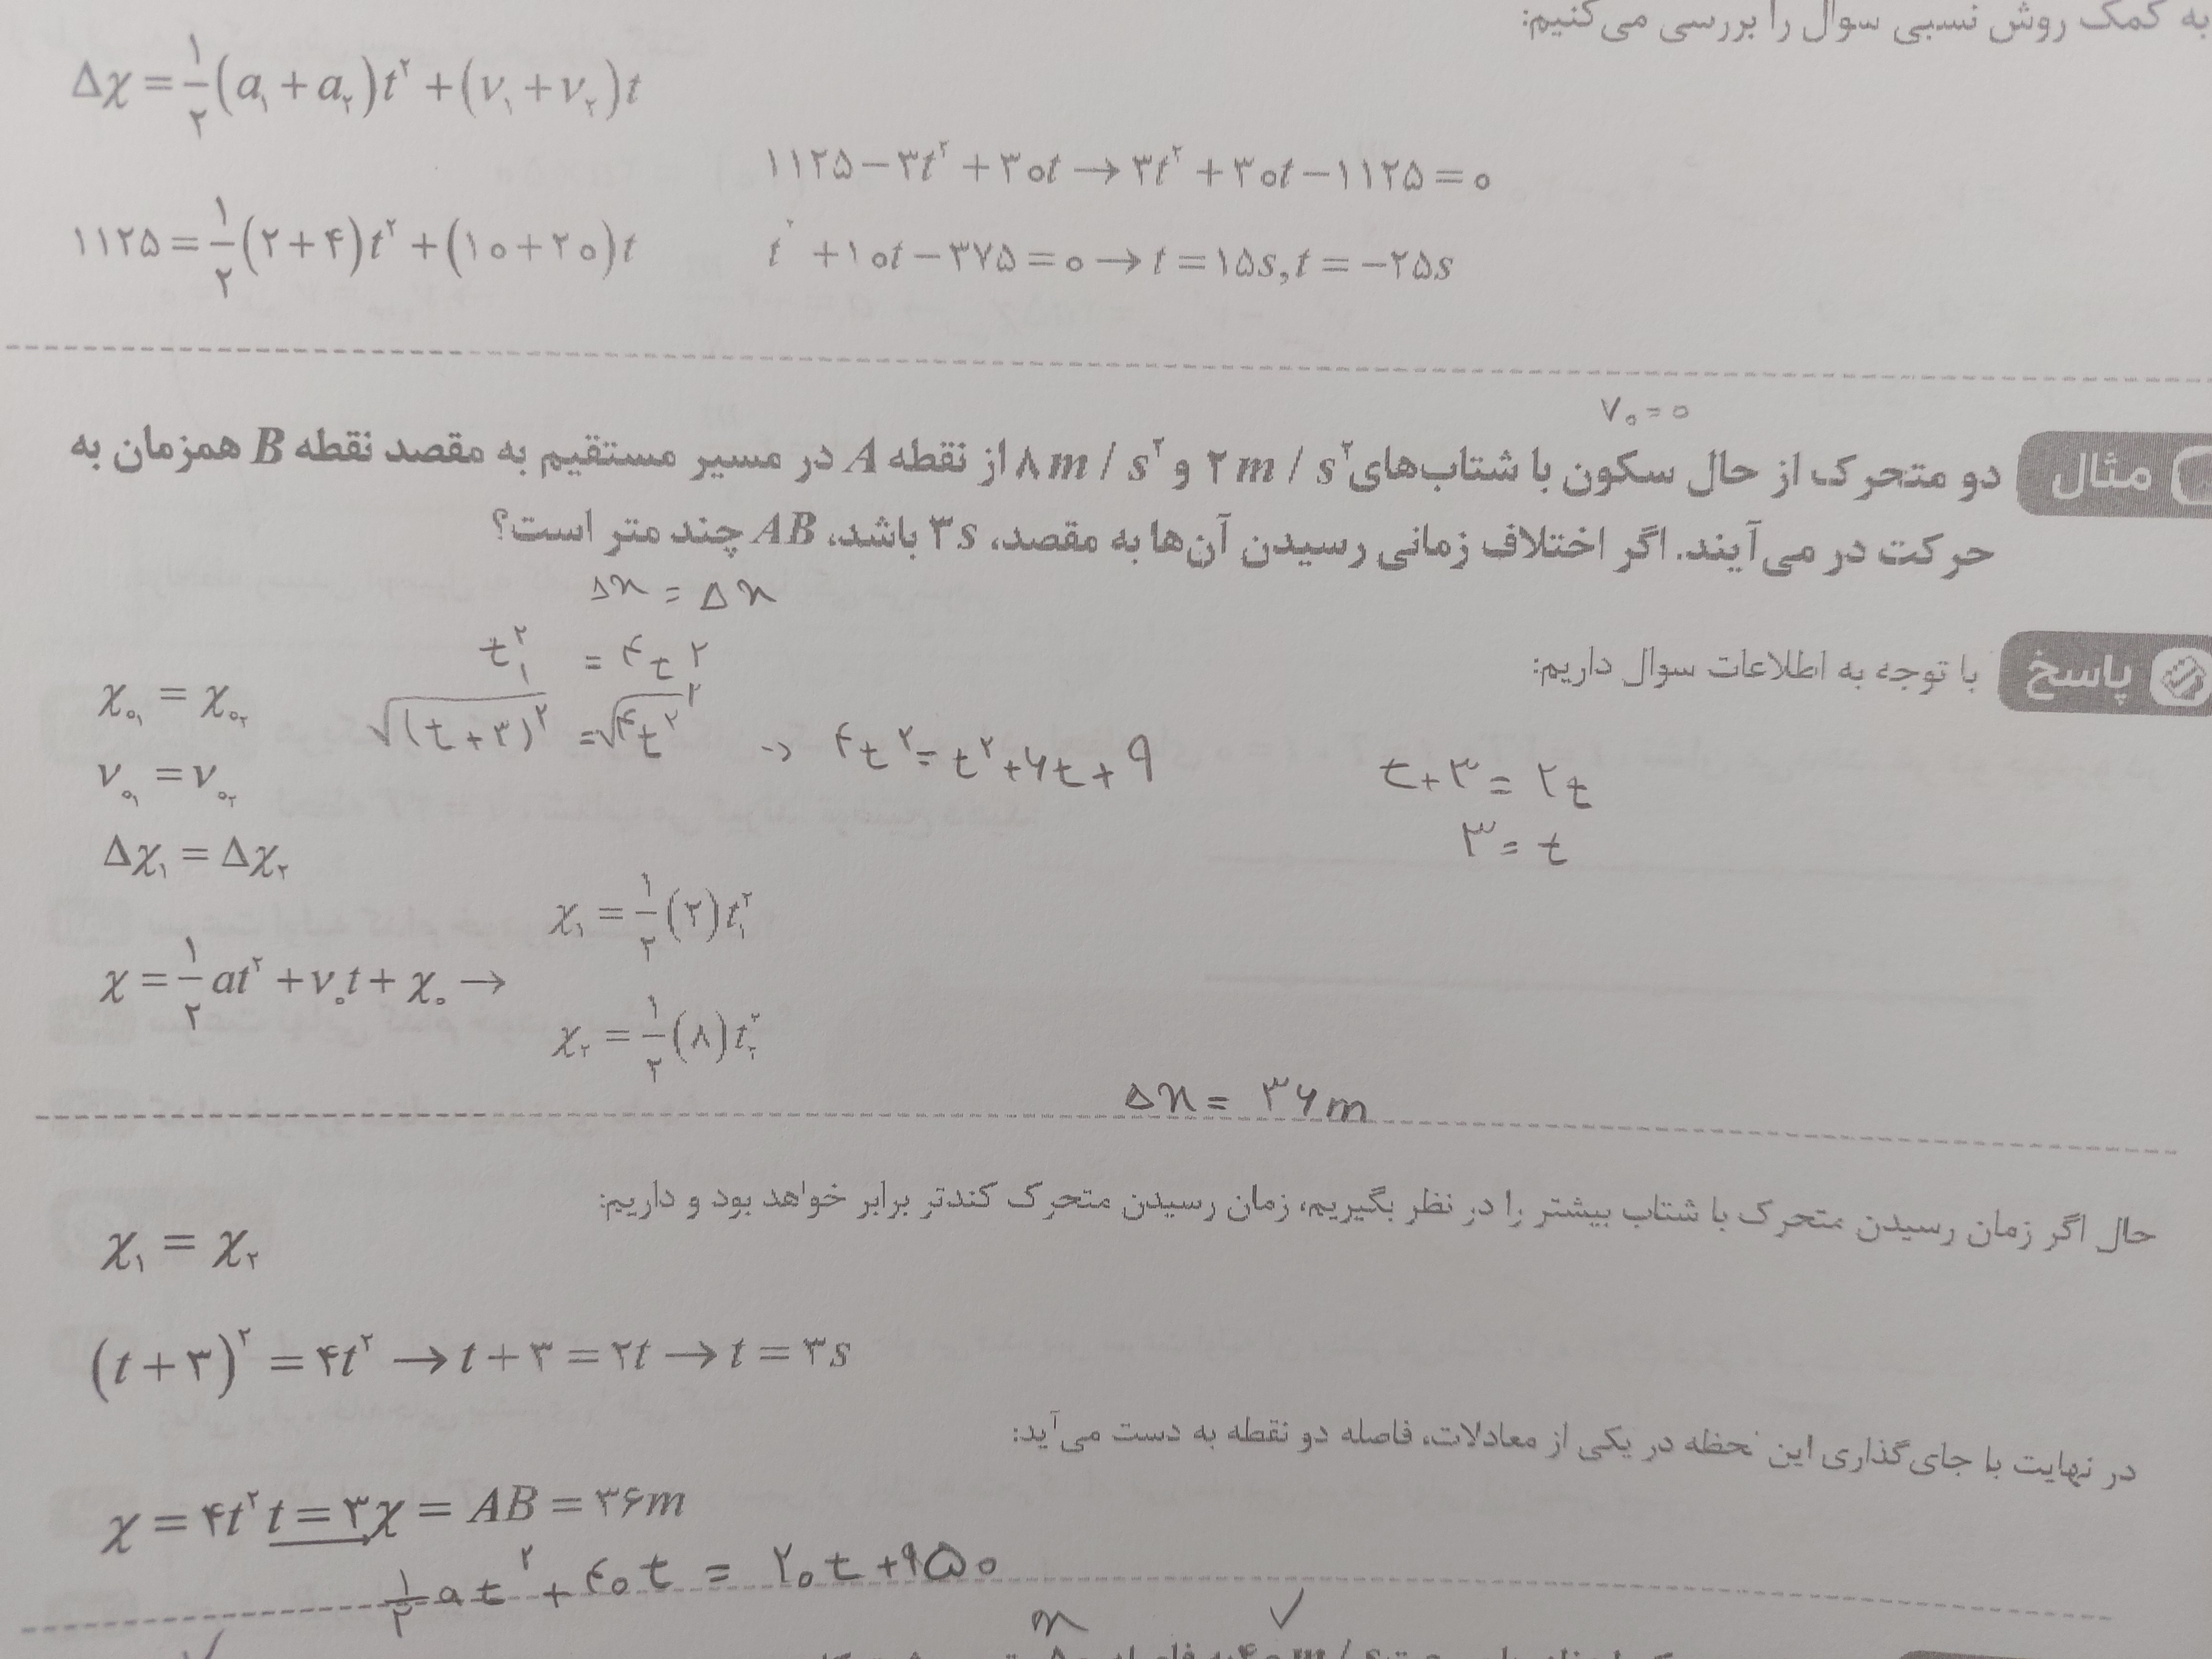 به کمک روش نسبی سوال را بررسی می‌کنیم:
Δχ = ۱/۲ (a₁ + a₂)t² + (v₁ + v₂)t
۱۱۲۵ = ۱/۲ (۲+۴)t² + (۱۰+۲۰)t
۱۱۲۵ − ۳t² + ۳۰t → ۳t² + ۳۰t − ۱۱۲۵ = ۰
t² + ۱۰t − ۳۷۵ = ۰ → t = ۱۵s, t = −۲۵s
V₀ = ۰
مثال دو متحرک از حال سکون با شتاب‌های ۲m/s² و ۸m/s² از نقطه A در مسیر مستقیم به مقصد نقطه B همزمان به
حرکت در می‌آیند. اگر اختلاف زمانی رسیدن آن‌ها به مقصد، ۳s باشد، AB چند متر است؟
Δx = Δx
t₁² = ۴t²
پاسخ با توجه به اطلاعات سوال داریم:
√(t+۳)² = √۴t² → ۴t² = t² + ۶t + ۹
t + ۳ = ۲t
۳ = t
χ₀₁ = χ₀₂
v₀₁ = v₀₂
Δχ₁ = Δχ₂
χ = ۱/۲ at² + v₀t + χ₀ →
χ₁ = ۱/۲ (۲)t₁²
χ₂ = ۱/۲ (۸)t₂²
Δx = ۳۶m
حال اگر زمان رسیدن متحرک با شتاب بیشتر را در نظر بگیریم، زمان رسیدن متحرک کندتر برابر خواهد بود و داریم:
χ₁ = χ₂
(t+۳)² = ۴t² → t + ۳ = ۲t → t = ۳s
در نهایت با جای‌گذاری این لحظه در یکی از معادلات، فاصله دو نقطه به دست می‌آید:
χ = ۴t² t = ۳ χ = AB = ۳۶m
۱/۲ at² + ۴۰t = ۲۰t + ۹۵۰